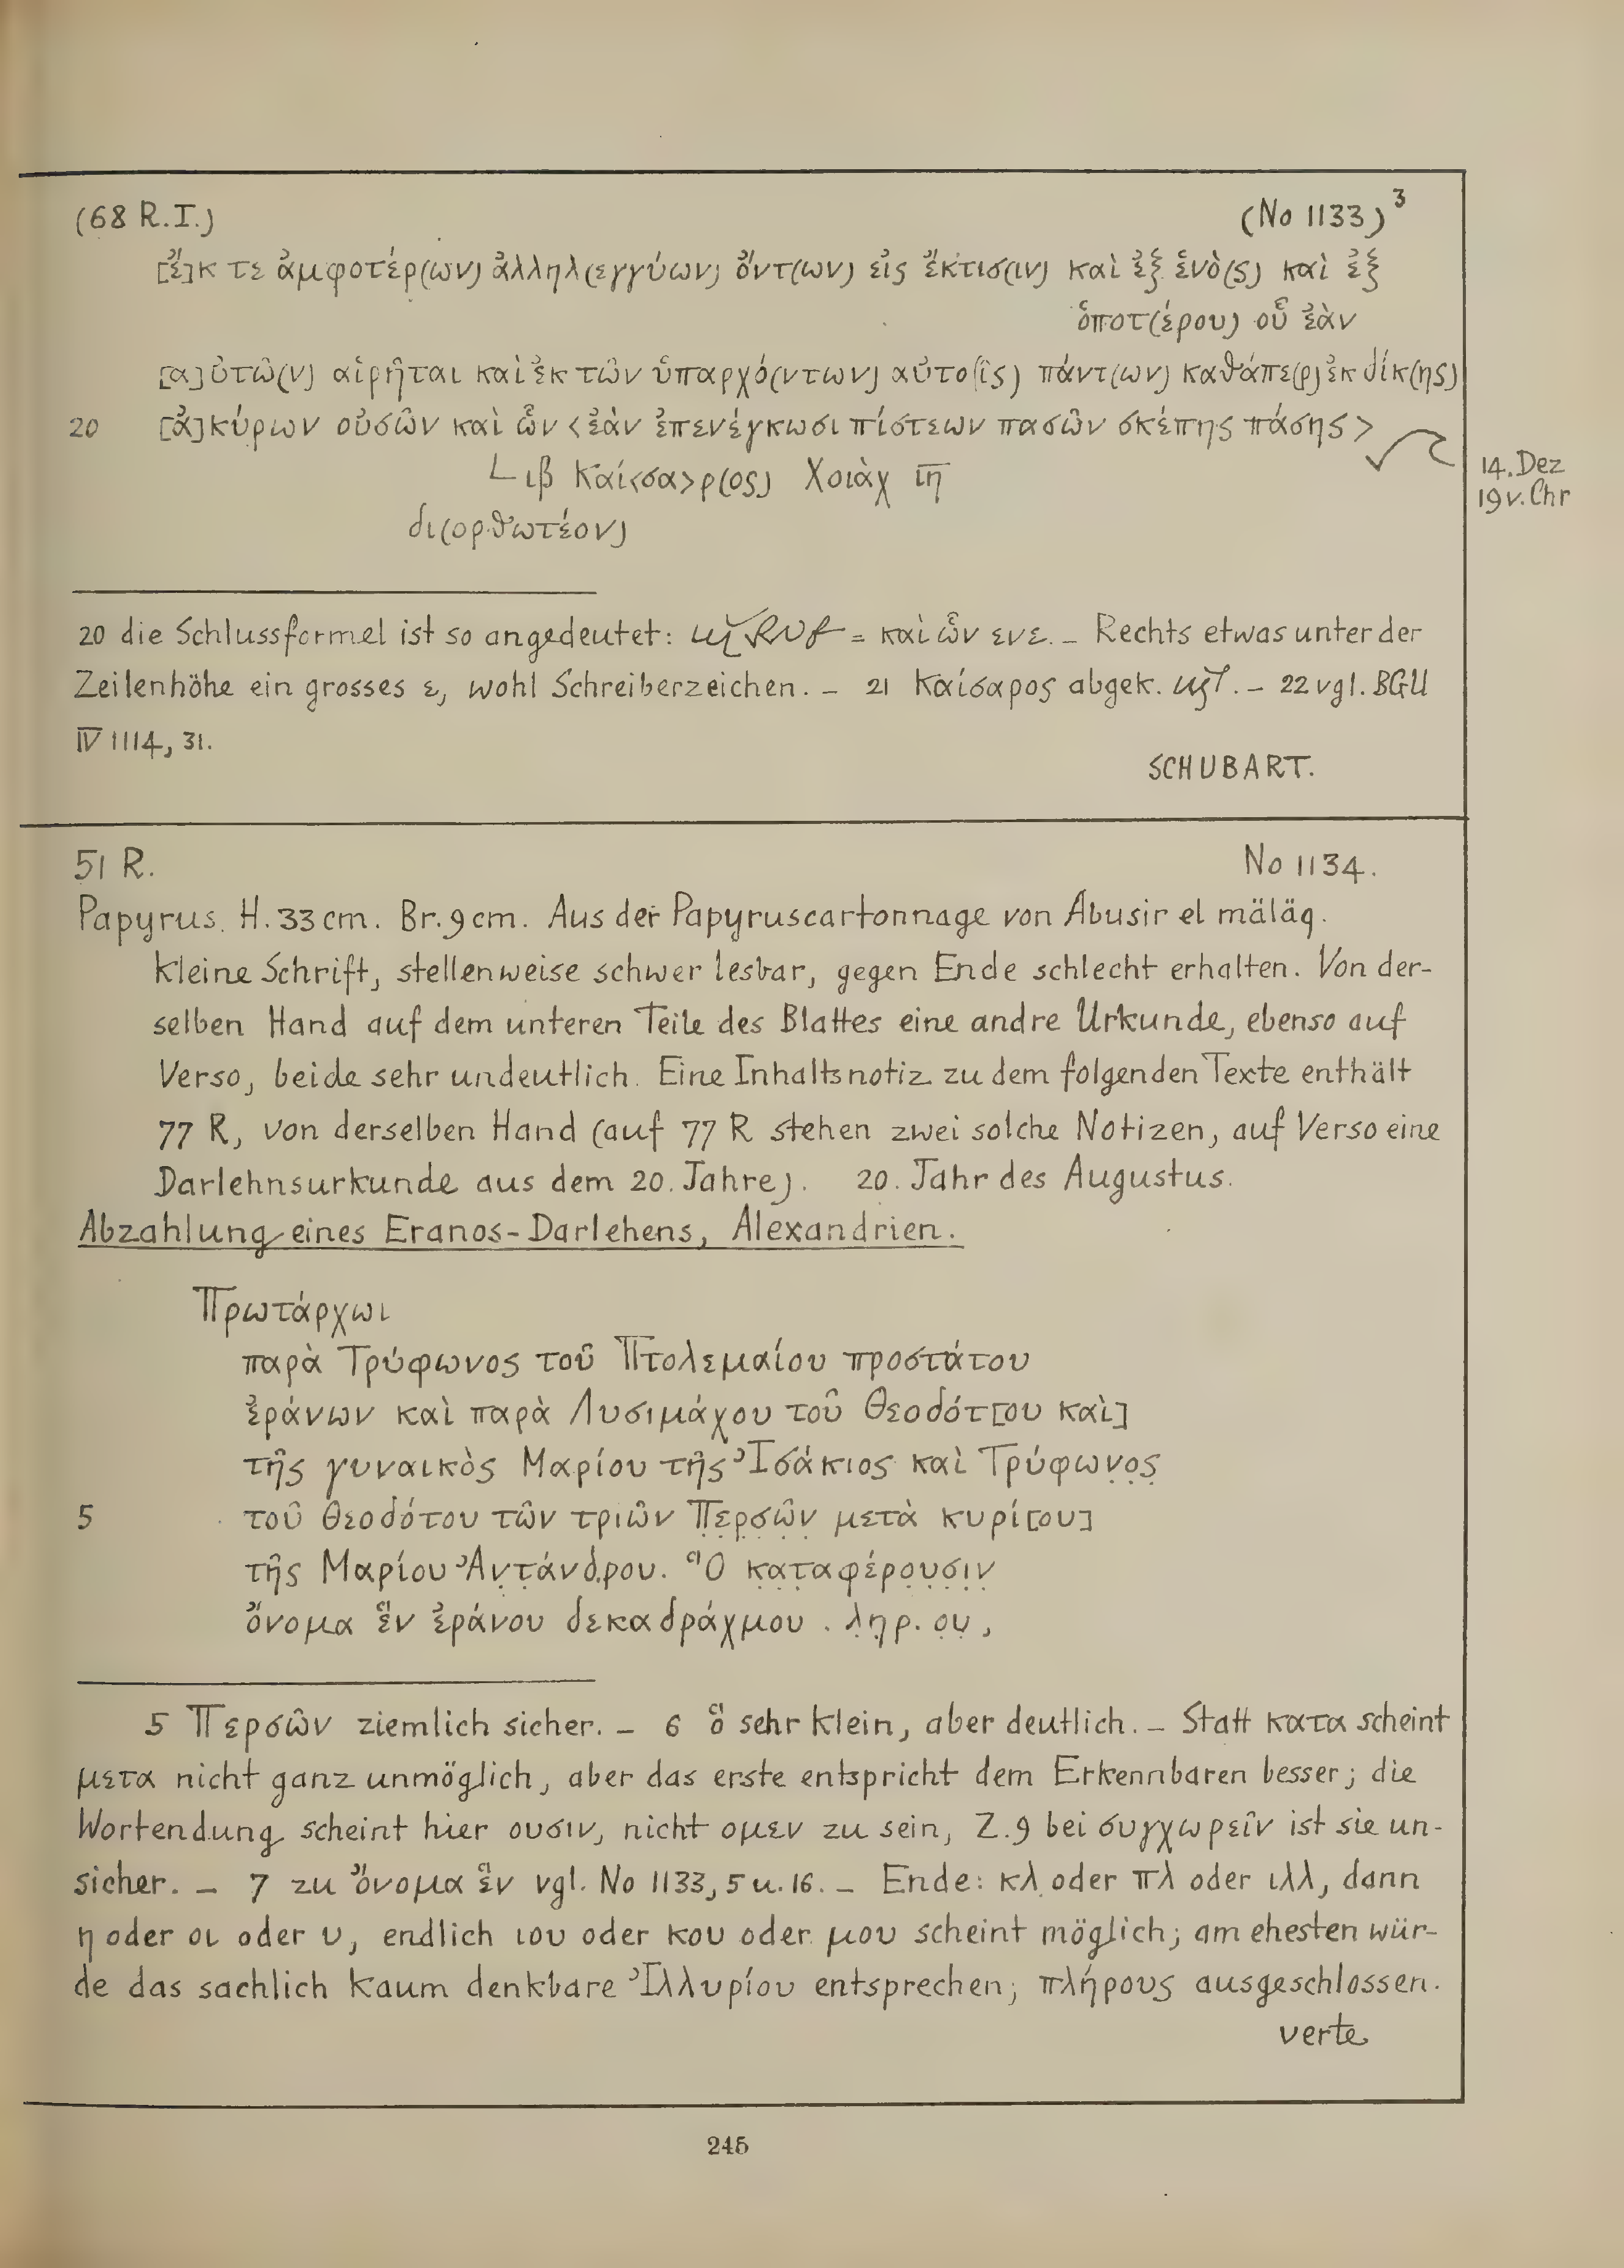 (68 R.I.) (No 1133)³
[ἔ]κ τε ἀμφοτέρ(ων) ἀλληλ(εγγύων) ὄντ(ων) εἰς ἔκτισ(ιν) καὶ ἐξ ἑνὸ(ς) καὶ ἐξ
ὁποτ(έρου) οὗ ἐὰν
[α]ὐτῶ(ν) αἱρῆται καὶ ἐκ τῶν ὑπαρχό(ντων) αὐτο(ῖς) πάντ(ων) καθάπε(ρ) ἐκ δίκ(ης)
20 [ἀ]κύρων οὐσῶν καὶ ὧν <ἐὰν ἐπενέγκωσι πίστεων πασῶν σκέπης πάσης>
14. Dez
19 v. Chr
𐅹 ιβ Καί<σα>ρ(ος) Χοιὰχ ι̅η̅
δι(ορθωτέον)
20 die Schlussformel ist so angedeutet: = καὶ ὧν ενε. – Rechts etwas unter der
Zeilenhöhe ein grosses ε, wohl Schreiberzeichen. – 21 Καίσαρος abgek. . – 22 vgl. BGU
IV 1114, 31.
SCHUBART.
51 R. No 1134.
Papyrus. H. 33 cm. Br. 9 cm. Aus der Papyruscartonnage von Abusir el mäläq.
Kleine Schrift, stellenweise schwer lesbar, gegen Ende schlecht erhalten. Von der-
selben Hand auf dem unteren Teile des Blattes eine andre Urkunde, ebenso auf
Verso, beide sehr undeutlich. Eine Inhaltsnotiz zu dem folgenden Texte enthält
77 R, von derselben Hand (auf 77 R stehen zwei solche Notizen, auf Verso eine
Darlehnsurkunde aus dem 20. Jahre). 20. Jahr des Augustus.
Abzahlung eines Eranos-Darlehens, Alexandrien.
Πρωτάρχωι
παρὰ Τρύφωνος τοῦ Πτολεμαίου προστάτου
ἐράνων καὶ παρὰ Λυσιμάχου τοῦ Θεοδότ[ου καὶ]
τῆς γυναικὸς Μαρίου τῆς Ἰσάκιος καὶ Τρύφωνο̣ς̣
5 τοῦ Θεοδότου τῶν τριῶν Π̣ε̣ρ̣σ̣ῶ̣ν̣ μετὰ κυρί[ου]
τῆς Μαρίου Ἀν̣τ̣άνδ̣ρου. Ὃ κ̣α̣τ̣α̣φέρο̣υ̣σ̣ι̣ν̣
ὄνομα ἓν ἐράνου δεκαδράχμου . λ̣η̣ρ̣. ο̣υ̣,
5 Περσῶν ziemlich sicher. – 6 ὃ sehr klein, aber deutlich. – Statt κατα scheint
μετα nicht ganz unmöglich, aber das erste entspricht dem Erkennbaren besser; die
Wortendung scheint hier ουσιν, nicht ομεν zu sein, Z. 9 bei συγχωρεῖν ist sie un-
sicher. – 7 zu ὄνομα ἓν vgl. No 1133, 5 u. 16. – Ende: κλ oder πλ oder ιλλ, dann
η oder οι oder υ, endlich ιου oder κου oder μου scheint möglich; am ehesten wür-
de das sachlich kaum denkbare Ἰλλυρίου entsprechen; πλήρους ausgeschlossen.
verte
245